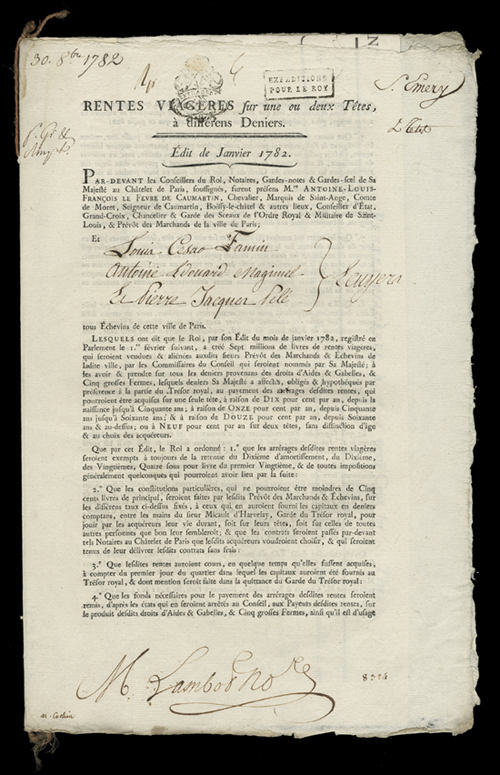 30. 8bre 1782
EXPEDITIONS
POUR LE ROY
St Emery
RENTES VIAGERES sur une ou deux Têtes,
à différens Deniers.
Édit de Janvier 1782.
PAR-DEVANT les Conseillers du Roi, Notaires, Gardes-notes & Gardes-scel de Sa
Majesté au Châtelet de Paris, soussignés, furent présens M.re ANTOINE-LOUIS-
FRANÇOIS LE FEVRE DE CAUMARTIN, Chevalier, Marquis de Saint-Ange, Comte
de Moret, Seigneur de Caumartin, Boissy-le-chitel & autres lieux, Conseiller d'État,
Grand-Croix, Chancelier & Garde des Sceaux de l'Ordre Royal & Militaire de Saint-
Louis, & Prévôt des Marchands de la ville de Paris;
Et
Louis Cesar Famin
Antoine Edouard Magimel
Et Pierre Jacques Pelé
Ecuyers
tous Échevins de cette ville de Paris.
LESQUELS ont dit que le Roi, par son Édit du mois de janvier 1782, registré en
Parlement le 1.er février suivant, a créé Sept millions de livres de rentes viageres,
qui seroient vendues & aliénées auxdits sieurs Prévôt des Marchands & Échevins de
ladite ville, par les Commissaires du Conseil qui seroient nommés par Sa Majesté; à
les avoir & prendre sur tous les deniers provenans des droits d'Aides & Gabelles, &
Cinq grosses Fermes, lesquels deniers Sa Majesté a affectés, obligés & hypothéqués par
préférence à la partie du Trésor royal, au payement des arrérages desdites rentes, qui
pourroient être acquises sur une seule tête, à raison de DIX pour cent par an, depuis la
naissance jusqu'à Cinquante ans; à raison de ONZE pour cent par an, depuis Cinquante
ans jusqu'à Soixante ans; & à raison de DOUZE pour cent par an, depuis Soixante
ans & au-dessus; ou à NEUF pour cent par an sur deux têtes, sans distinction d'âge
& au choix des acquéreurs.
Que par cet Édit, le Roi a ordonné: 1.° que les arrérages desdites rentes viagères
seroient exempts à toujours de la retenue du Dixième d'amortissement, du Dixième,
des Vingtièmes, Quatre sous pour livre du premier Vingtième, & de toutes impositions
généralement quelconques qui pourroient avoir lieu par la suite:
2.° Que les constitutions particulières, qui ne pourroient être moindres de Cinq
cents livres de principal, seroient faites par lesdits Prévôt des Marchands & Échevins, sur
les différens taux ci-dessus fixés, à ceux qui en auroient fourni les capitaux en deniers
comptans, entre les mains du sieur Micault d'Harvelay, Garde du Trésor royal, pour
jouir par les acquéreurs leur vie durant, soit sur leurs têtes, soit sur celles de toutes
autres personnes que bon leur sembleroit; & que les contrats seroient passés par-devant
tels Notaires au Châtelet de Paris que lesdits acquéreurs voudroient choisir, & qui seroient
tenus de leur délivrer lesdits contrats sans frais:
3.° Que lesdites rentes auroient cours, en quelque temps qu'elles fussent acquises,
à compter du premier jour du quartier dans lequel les capitaux auroient été fournis au
Trésor royal, & dont mention seroit faite dans la quittance du Garde du Trésor royal:
4.° Que les fonds nécessaires pour le payement des arrérages desdites rentes seroient
remis, d'après les états qui en seroient arrêtés au Conseil, aux Payeurs desdites rentes, sur
le produit desdits droits d'Aides & Gabelles, & Cinq grosses Fermes, ainsi qu'il est d'usage
M. Lambot Nore
M. Cochin